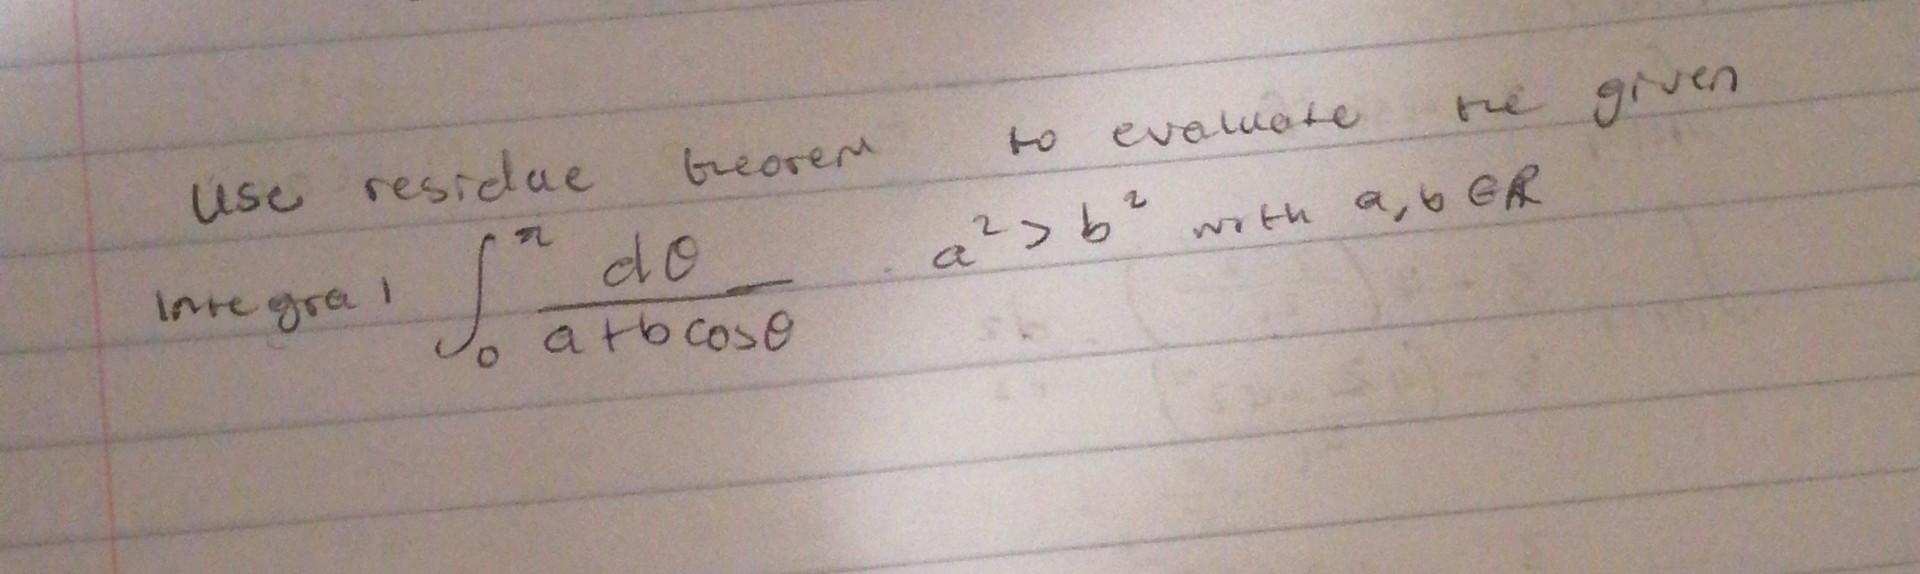 Use residue theorem to evaluate the given
Integral ∫₀^π dθ/(a+b cosθ) a² > b² with a, b ∈ ℝ